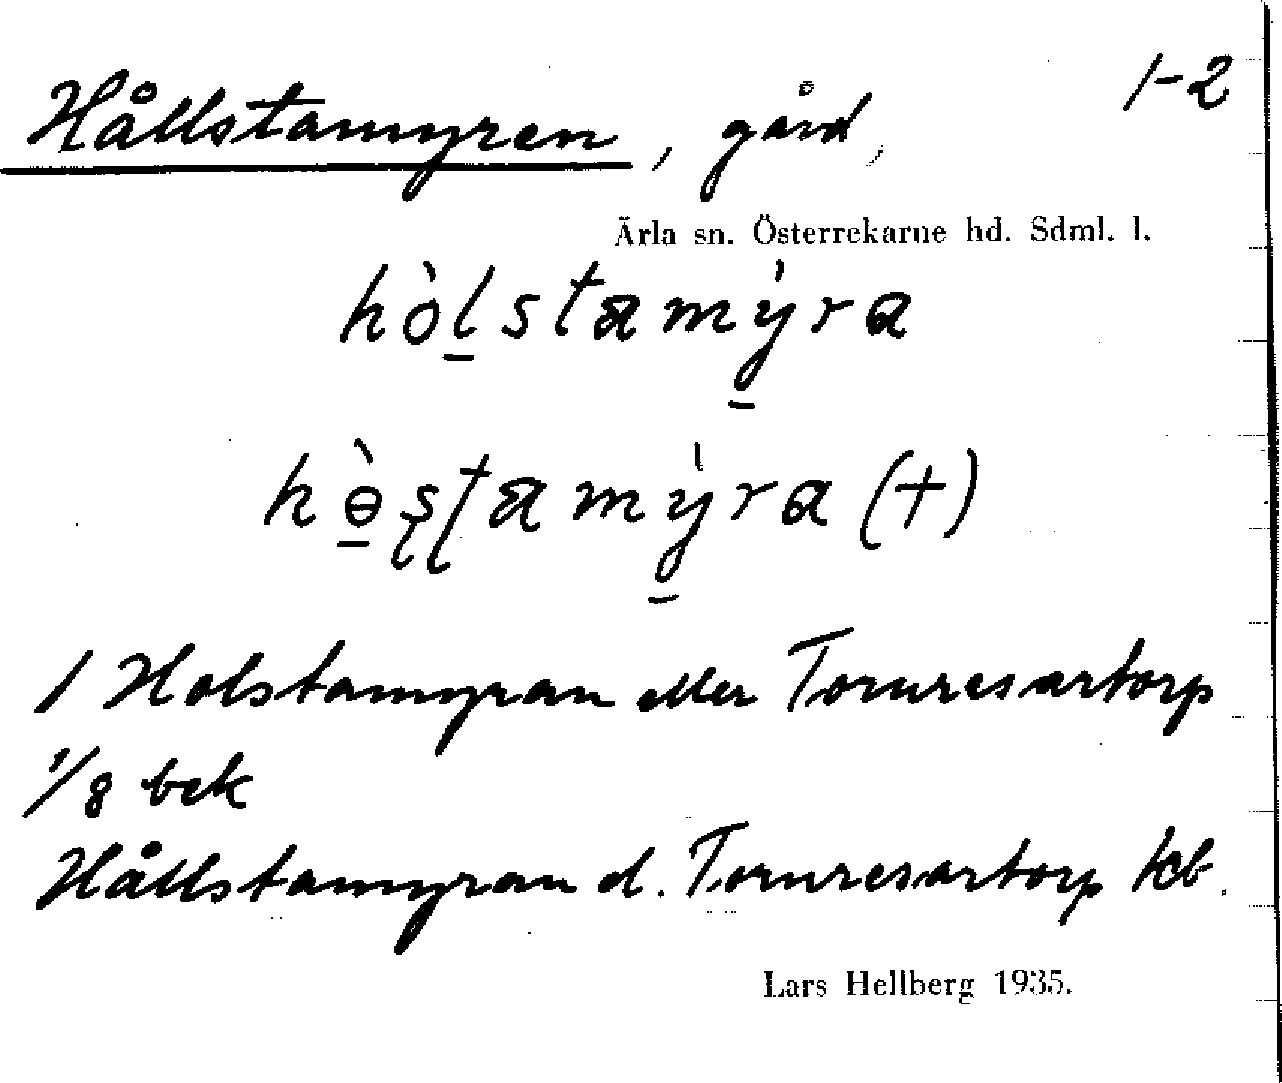 Hållstamyren, gård, 1-2
Ärla sn. Österrekarne hd. Sdml. l.
hòl̠stamỳ̠ra
hɵ̠̀ʂʈamỳ̠ra (+)
1 Holstamyran eller Tornresartorp
1/8 bek
Hållstamyran el. Tornresartorp kb.
Lars Hellberg 1935.